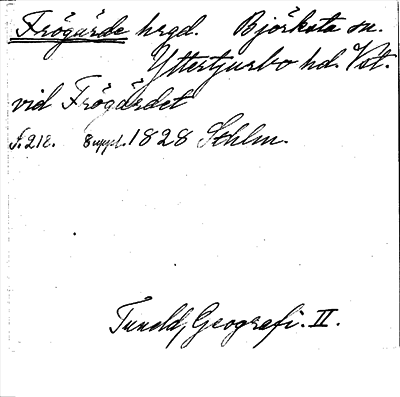 Frögärde hrgd. Björksta sn.
Yttertjurbo hd. Vst.
vid Frögärdet
s. 218. Suppl. 1828 Sthlm.
Tuneld, Geografi. II.